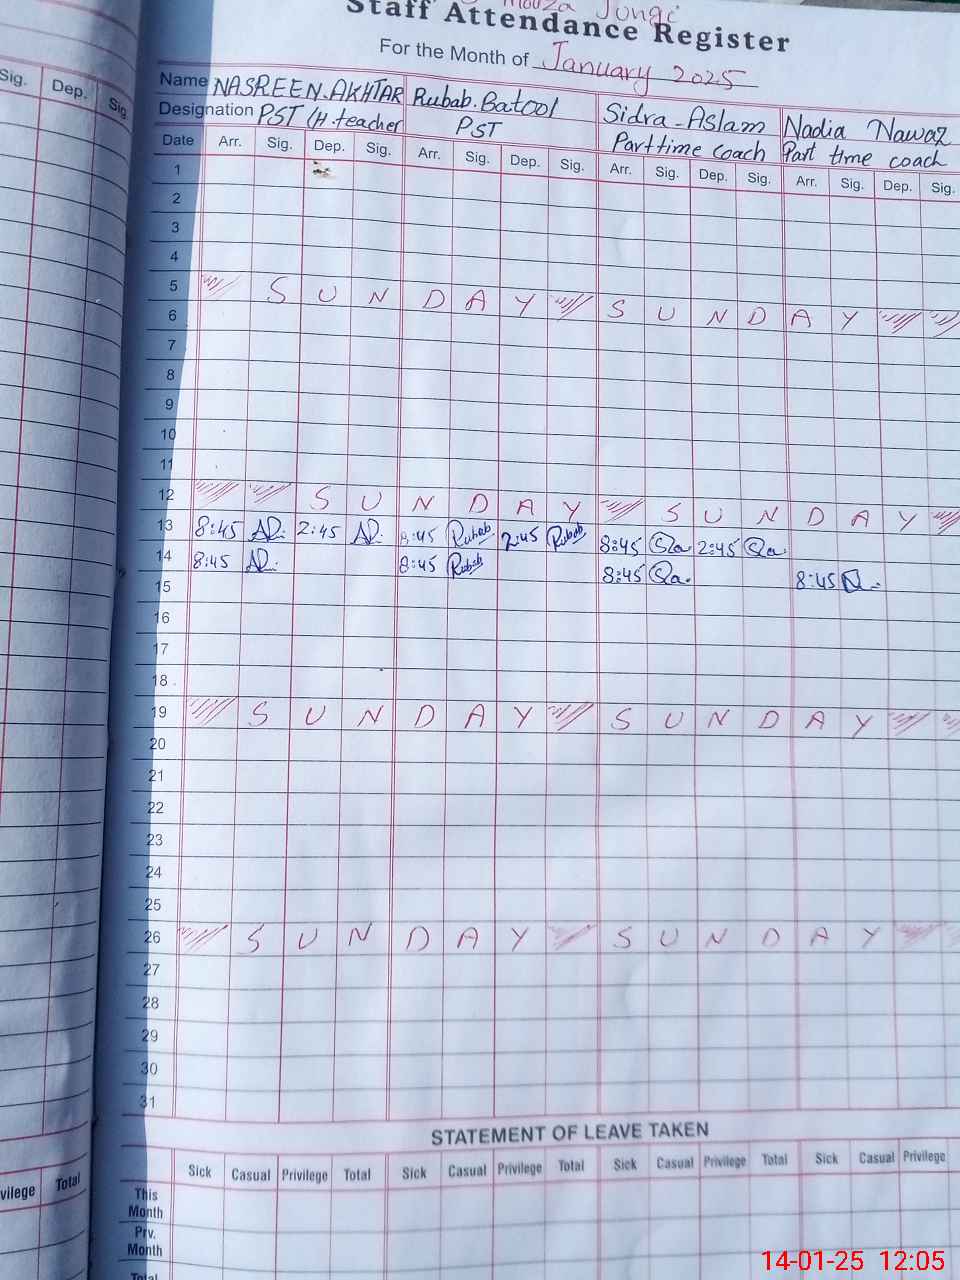 Mouza Jongi
Staff Attendance Register
For the Month of January 2025
Sig. Dep. Sig
Name NASREEN.AKHTAR Rubab.Batool Sidra-Aslam Nadia Nawaz
Designation PST (H.teacher PST Part time coach Part time coach
Date Arr. Sig. Dep. Sig. Arr. Sig. Dep. Sig. Arr. Sig. Dep. Sig. Arr. Sig. Dep. Sig.
1
2
3
4
5 S U N D A Y S U N D A Y
6
7
8
9
10
11
12 S U N D A Y S U N D A Y
13 8:45 2:45 8:45 Rubab 2:45 Rubab 8:45 Sa 2:45 Sa
14 8:45 8:45 Rubab 8:45 Sa. 8:45 N.
15
16
17
18
19 S U N D A Y S U N D A Y
20
21
22
23
24
25
26 S U N D A Y S U N D A Y
27
28
29
30
31
STATEMENT OF LEAVE TAKEN
vilege Total
Sick Casual Privilege Total Sick Casual Privilege Total Sick Casual Privilege Total Sick Casual Privilege
This
Month
Prv.
Month
Total
14-01-25 12:05